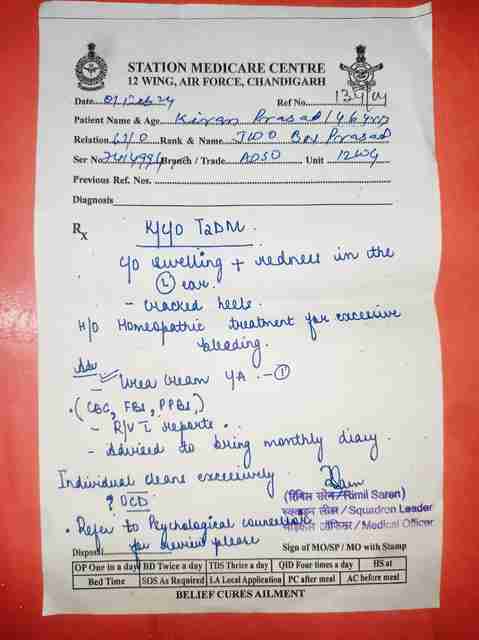 STATION MEDICARE CENTRE
12 WING, AIR FORCE, CHANDIGARH
Date 01/Feb 24 Ref No. 134/01
Patient Name & Age Kiran Prasad/46yrs
Relation W/O Rank & Name JWO BN Prasad
Ser No. Branch / Trade ADSO Unit 12WG
Previous Ref. Nos.
Diagnosis
Rx K/C/O T2DM.
C/O swelling + redness in the
(L) ear.
- cracked heels.
H/O Homeopathic treatment for excessive
bleeding.
Adv
- Urea cream L/A - (1)
• (CBC, FBS, PPBS)
- R/V c̄ reports.
- Advised to bring monthly diary.
Individual cleans excessively
? OCD
• Refer to Psychological counsellor
for review please
(रिमिल सरेन/Rimil Saren)
स्क्वाड्रन लीडर/Squadron Leader
मेडिकल ऑफिसर/Medical Officer
Disposal Sign of MO/SP / MO with Stamp
OP One in a day BD Twice a day TDS Thrice a day QID Four times a day HS at
Bed Time SOS As Required LA Local Application PC after meal AC before meal
BELIEF CURES AILMENT